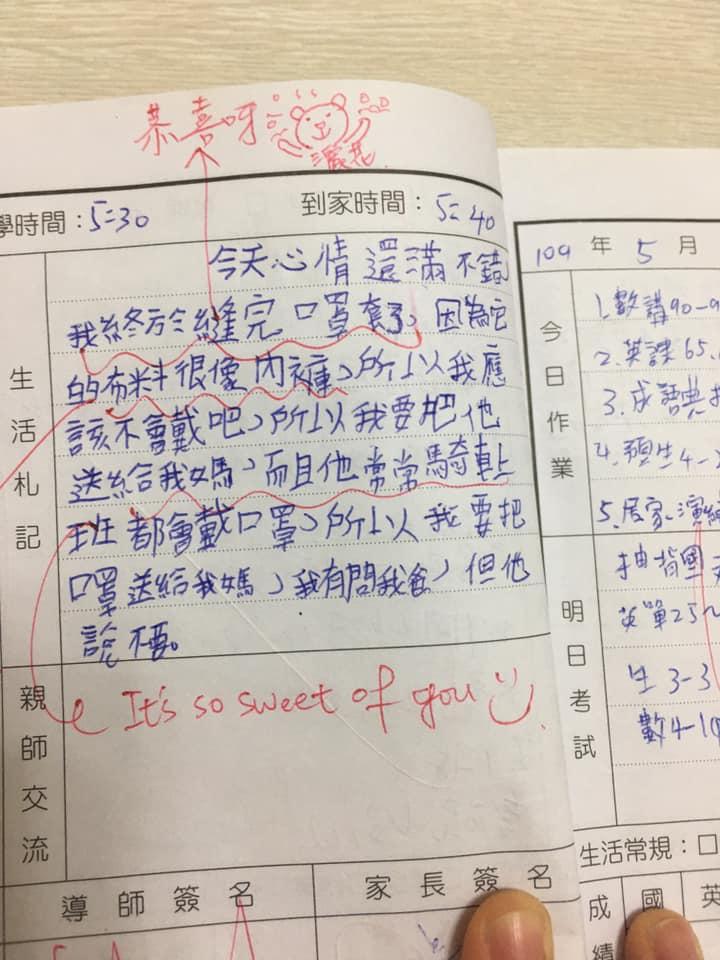 恭喜呀
灑花
學時間：5:30
到家時間：5:40
生活札記
今天心情還滿不錯
我終於縫完口罩套了，因為它
的布料很像內褲，所以我應
該不會戴吧，所以我要把他
送給我媽，而且他常常騎車上
班都會戴口罩，所以我要把
口罩送給我媽，我有問我爸，但他
說不要。
親師交流
It's so sweet of you
導師簽名
家長簽名
109 年 5 月
今日作業
1.數講90-9
2.英課65.
3.成語典
4.預生4-
5.居家演練
明日考試
抽背國
英單25
生3-3
數4-1
生活常規：□
成績
國
英